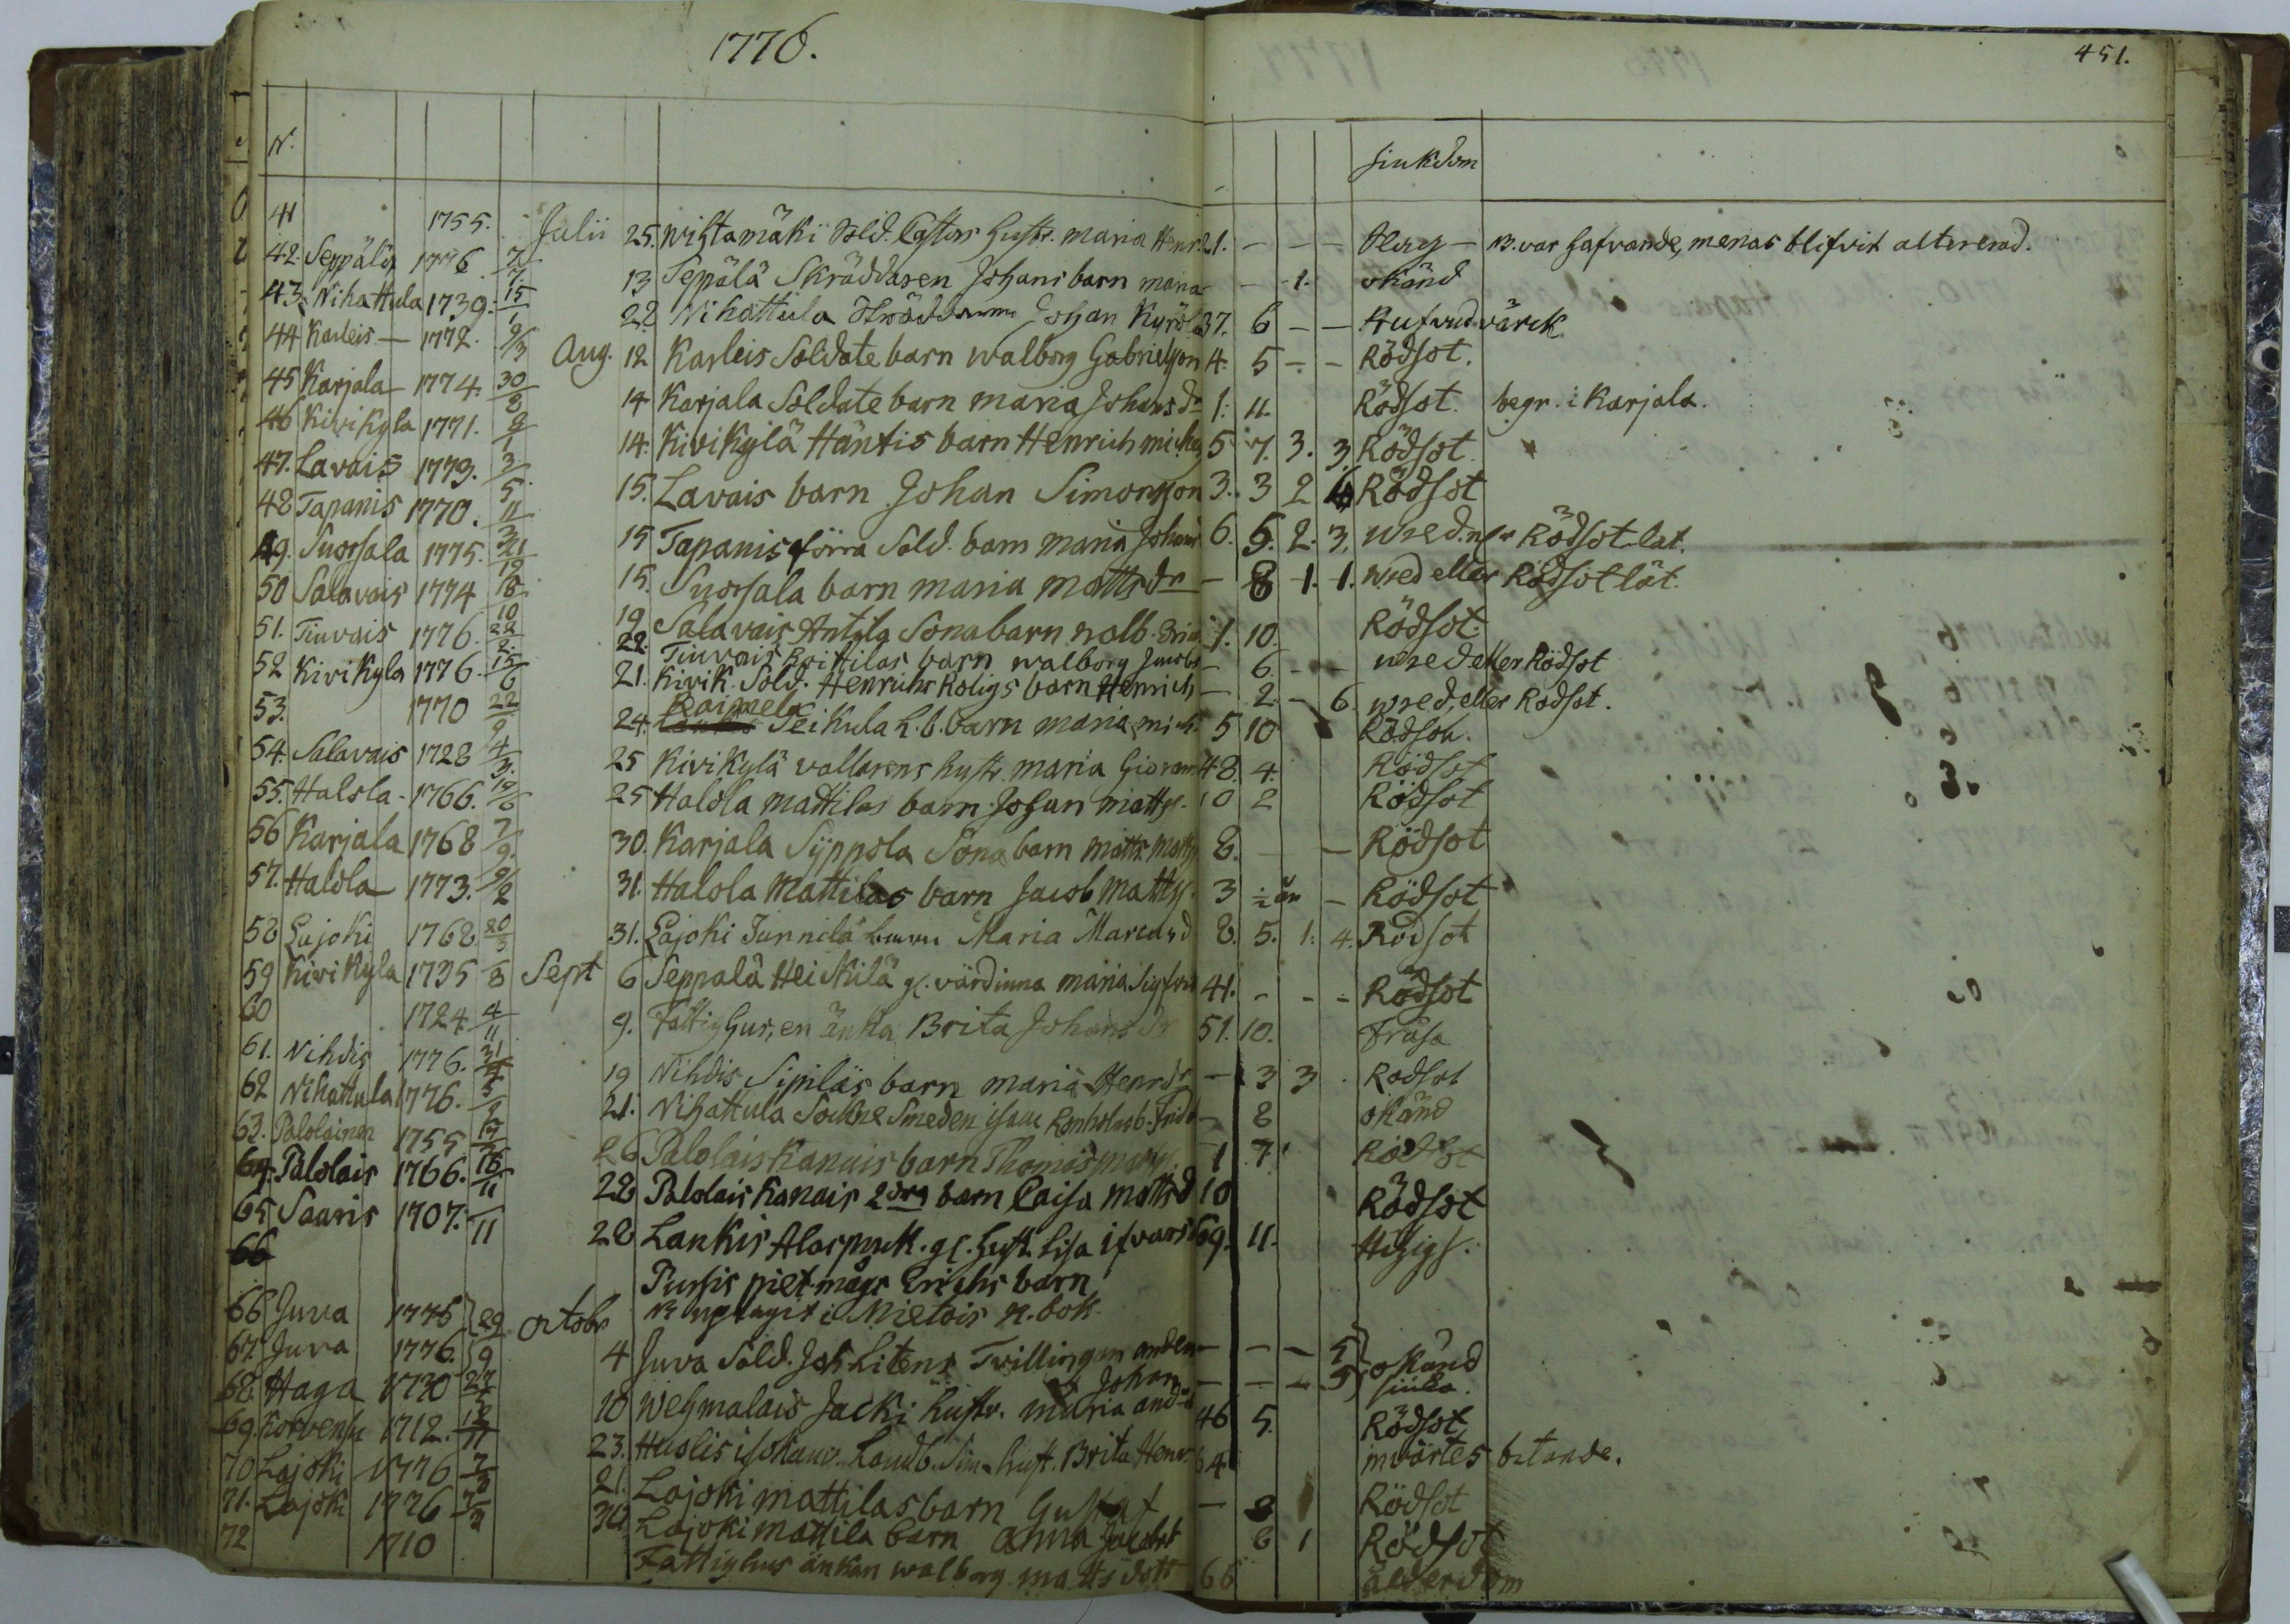 1776.
451.
N.
siukdom
41 1755. Julii 25. Wihtamäki Sold. Castors hustr. maria Henr. 21. - - - Hav. var hafvande, menas blifvit altererad.
42. Seppälä 1776. 7/7 13 Sepälä Skräddaren Johans barn maria - - 1. okänd
43. Nihattula 1739. 15/1 22 Nihattula Johan Kyrölä 37. 6 - - Hufvudvärck
44 Karleis - 1772. 9/3 Aug. 12 Karleis Soldate barn walborg Gabrielson 4. 5 - - Rödsot.
45 Karjala 1774. 30/8 14 Karjala Soldate barn maria Johans dr 1. 11. Rödsot. begr. i Karjala.
46 Kivikyla 1771. 9/1 14. Kivikylä Häntis barn Henrich 5 7. 3. 3. Rödsot
47. Lavais 1773. 3/5 15. Lavais barn Johan Simonsson 3. 3 2 4 Rödsot
48 Tapanis 1770. 11/3 15 Tapanis förra Sold. barn maria Johans 6. 5. 2. 3. Rödsot lat.
49. Suorsala 1775. 21/12 15. Suorsala barn maria matts dr - 8 1. 1. wred eller Rödsot lät.
50 Salavais 1774 18/10 19 Salavais Antila Sonabarn walb. 1. 10. Rödsot.
51. Tiuvais 1776. 22/2. 22. Tiuvais barn walborg Jacobs - 6. - - wred eller Rödsot
52 Kivikyla 1776. 15/6 21. Kivik. Sold. Henrichs Roligs barn Henrich - 2. - 6. wred, eller Rodsot.
53. 1770 22/9 24. Raimela Seikula L.b. barn maria mich. 5 10 Rödsot.
54. Salavais 1728 4/3. 25 Kivikylä vallarens hustr. maria 48. 4. Rödsot
55. Halola 1766. 19/6 25 Halola mattilas barn Johan matts. 10 2 Rödsot
56 Karjala 1768 7/9. 30. Karjala Syppola Sona barn matts. matts. 8. - - Rödsot
57. Halola 1773. 9/2 31. Halola Mattilas barn Jacob matts. 3 ½ år - Rödsot
58 Lajoki 1768. 20/3 31. Lajoki Junnila barn Maria Marcusd 8. 5. 1. 4. Rödsot
59 Kivikyla 1735 8 Sept 6 Seppälä Heickilä gl. värdinna maria Sigfrid 41. - - - Rödsot
60 1724. 4/11 9. Fattighus, en änka Brita Johans dr 51. 10. Fråsa
61. Nihdis 1776. 31/5 19 Nihdis Sipiläs barn maria Henrdr - 3 3 . Rodsot
62 Nihattula 1776. 21. Nihattula Sockne Smeden - 8 okänd
63. Palolainen 1755 26 Palolais Kanais barn Thomas 1 7. Rödsot
64. Palolais 1766. 18/11 28 Palolais Kanais 2dra barn Caisa matts d 10 Rödsot
65 Sauris 1707. /11 28 Lankis gl. hust. Lisa ifvars 69. 11. Hitzigs.
66
Pursis piet mågs Erichs barn
N. uptagit i Mietois N. bok
66 Juva 1776 Octobr
67. Juva 1776. 29/9 4 Juva Sold. Joh. Litens Trillingar anders - - - 5 okänd
Johan - - - 5 siuka.
68 Haga 1730 27/4 10 Wehmalais Jacki hustr. maria and-d 46 5. Rödsot
69. Korvensu 1712. 12/11 23. Huslis Landb. Sim. hust. Brita Henr. 64 invärtes betande.
70 Lajoki 1776 7/3 21. Lajoki mattilas barn Gustaf - 8 Rödsot
71. Lajoki 1776 7/3 30 Lajoki mattila barn Anna Jacobsd 6 1 Rödsot
72 1710 Fattighus änkan walborg matts dott 66 ålderdom